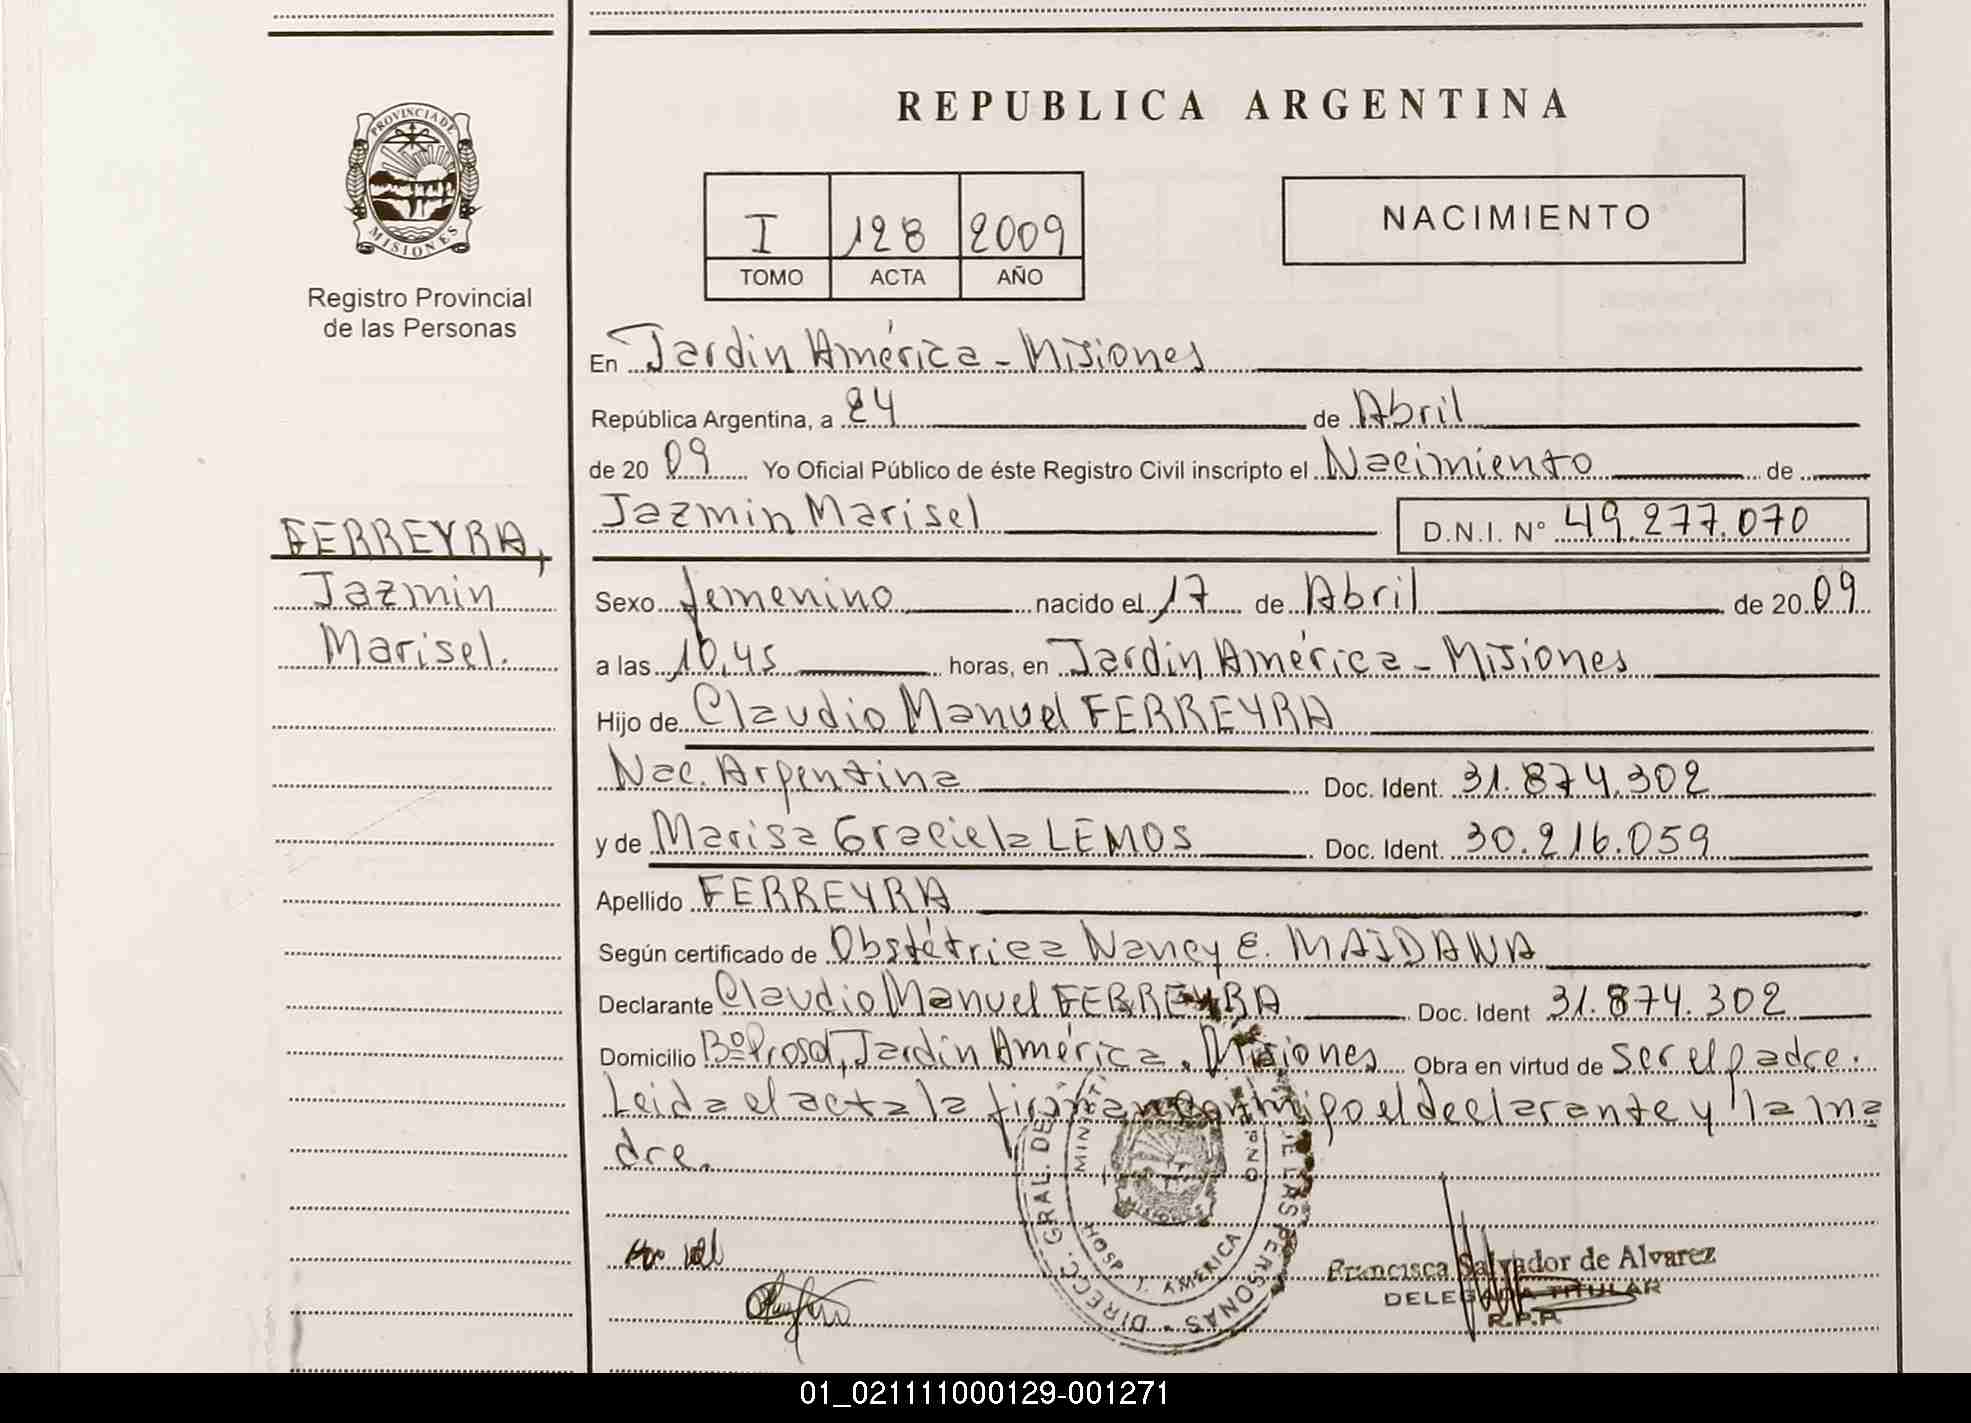 PROVINCIA DE
MISIONES
Registro Provincial
de las Personas
FERREYRA,
Jazmin
Marisel.
REPUBLICA ARGENTINA
I 128 2009
TOMO ACTA AÑO
NACIMIENTO
En Jardin América - Misiones
República Argentina, a 24 de Abril
de 20 09 Yo Oficial Público de éste Registro Civil inscripto el Nacimiento de
Jazmin Marisel D.N.I. Nº 49.277.070
Sexo femenino nacido el 17 de Abril de 20 09
a las 10,45 horas, en Jardin América - Misiones
Hijo de Claudio Manuel FERREYRA
Nac. Argentina Doc. Ident. 31.874.302
y de Marisa Graciela LEMOS Doc. Ident. 30.216.059
Apellido FERREYRA
Según certificado de Obstétrica Nancy E. MAIDANA
Declarante Claudio Manuel FERREYRA Doc. Ident 31.874.302
Domicilio Bº Prosol, Jardin América. Misiones Obra en virtud de ser el padre.
Leida el acta la firman conmigo el declarante y la ma
dre.
DIRECC. GRAL. DE LAS PERSONAS
HOSP. J. AMERICA
Francisca Salvador de Alvarez
DELEGADA TITULAR
R.P.P.
01_021111000129-001271